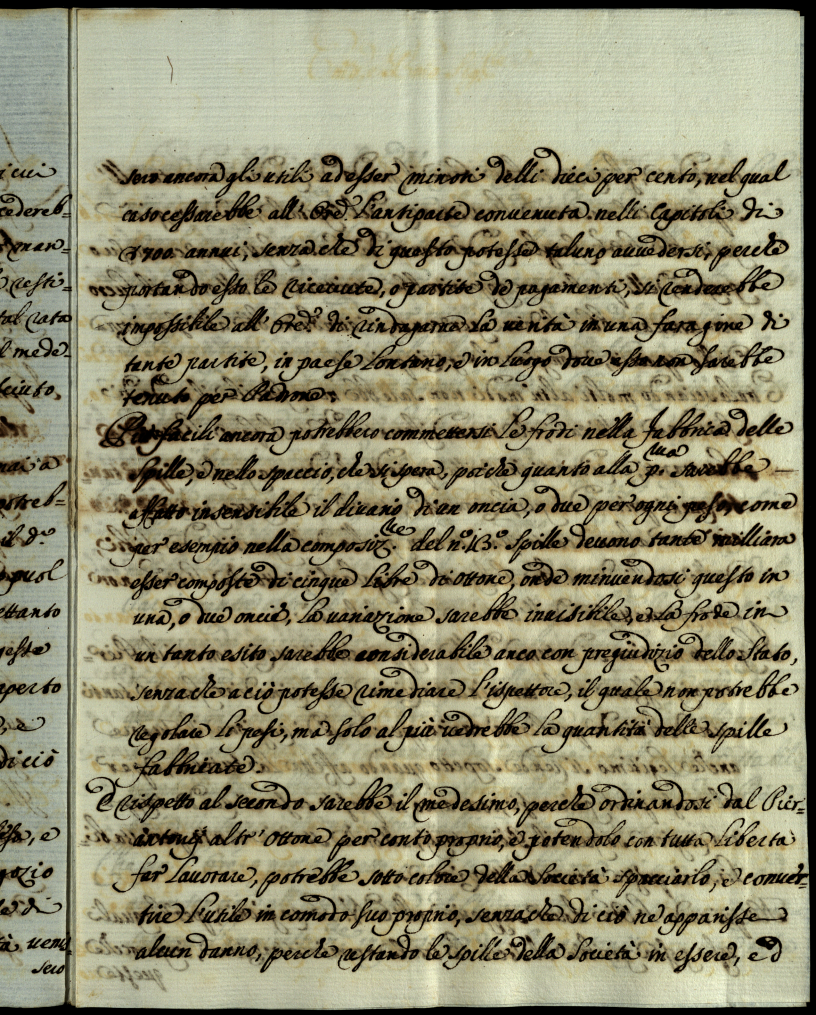 icui
cedereb=
man=
resti=
tal rata
l mede=
ciuto,
mai a
potreb=
il d.º
ettanto
aperto
, e
di ciò
essa, e
gozio
di
tà veni=
sero
sero ancora gli utili ad esser minori delli dieci per cento, nel qual
caso cessarebbe all' Ered.ª l'antiparte convenuta nelli Capitoli di
700 annui, senza che di questo potesse taluno avvedersi, perche
portando esso le ricevute, o partite de pagamenti, si renderebbe
impossibile all' Ered.ª di rindagarne la verità in una faragine di
tante partite, in paese lontano, e in luogo dove essa non sarebbe
tenuta per Padrona.
Più facili ancora potrebbero commettersi le frodi nella fabbrica delle
Spille, e nello spaccio, che si spera, poiche quanto alla p.ma sarebbe
affatto insensibile il divario di un oncia, o due per ogni peso, come
per esempio nella composiz.ne del n.º 13.º Spille devono tante milliara
esser composte di cinque libre di ottone, onde minuendosi questo in
una, o due oncie, la variazione sarebbe invisibile, e la frode in
un tanto esito sarebbe considerabile anco con pregiudizio dello Stato,
senza che a ciò potesse rimediare l'ispettore, il quale non potrebbe
regolare li pesi, mà solo al più vedrebbe la quantità delle spille
fabbricate.
E rispetto al secondo sarebbe il medesimo, perche ordinandosi dal Pier=
antonj altr' ottone per conto proprio, e potendolo con tutta libertà
far lavorare, potrebbe sotto colore della Società spacciarlo, e conver=
tire l'utile in comodo suo proprio, senza che di ciò ne apparisse
alcun danno, perche restando le spille della Società in essere, ed